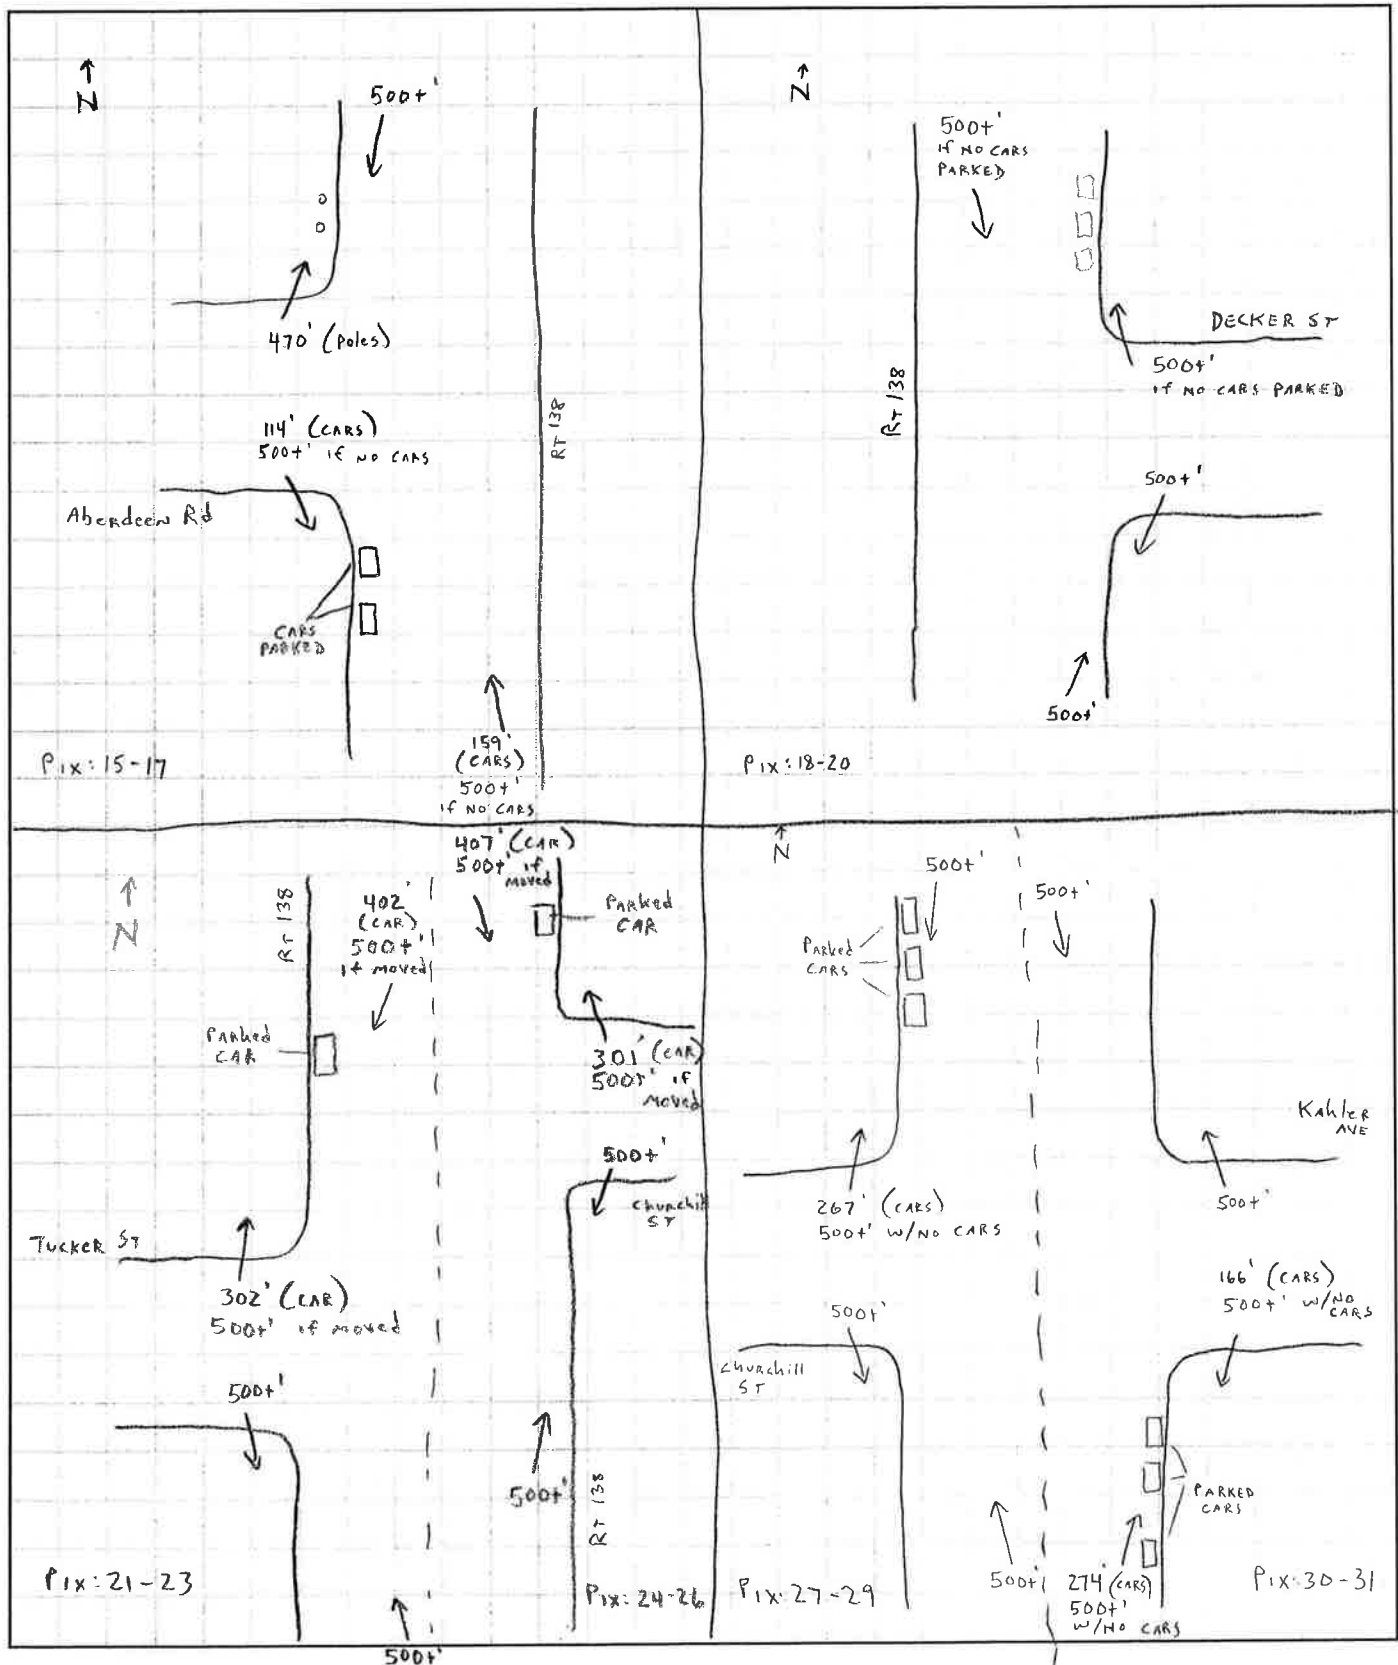 N
500+'
470' (Poles)
114' (CARS)
500+' if NO CARS
Aberdeen Rd
CARS
PARKED
RT 138
159'
(CARS)
500+'
if NO CARS
Pix: 15-17
N
500+'
if NO CARS
PARKED
DECKER ST
500+'
if NO CARS PARKED
RT 138
500+'
500+'
Pix: 18-20
N
RT 138
402'
(CAR)
500+'
if moved
PARKed
CAR
TUCKER ST
302' (CAR)
500+' if moved
500+'
500+'
Pix: 21-23
407' (CAR)
500+' if
moved
PARKed
CAR
301' (CAR)
500+' if
moved
500+'
Churchill
ST
500+'
RT 138
Pix: 24-26
N
500+'
PARKed
CARS
267' (CARS)
500+' w/NO CARS
500+'
Churchill
ST
500+'
Pix: 27-29
500+'
Kahler
AVE
500+'
166' (CARS)
500+' w/NO
CARS
PARKED
CARS
274' (CARS)
500+'
w/NO CARS
Pix: 30-31